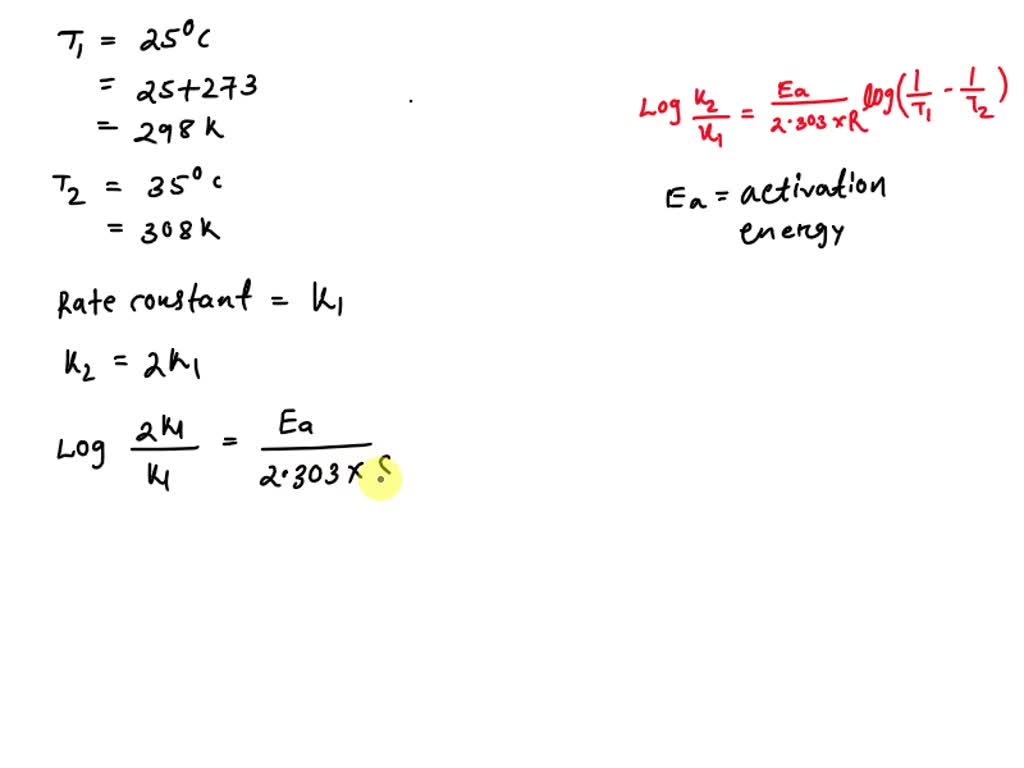 T₁ = 25°C
= 25+273
= 298 K
T₂ = 35°C
= 308 K
Rate constant = K₁
K₂ = 2K₁
Log 2K₁/K₁ = Ea/2.303 x
Log K₂/K₁ = Ea/2.303 x R log(1/T₁ - 1/T₂)
Ea = activation
energy